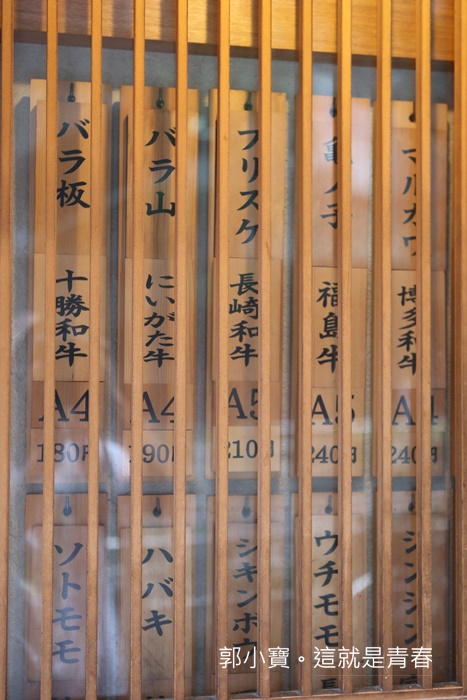 バラ板
十勝和牛
A4
180円
バラ山
にいがた牛
A4
190円
フリスケ
長崎和牛
A5
210円
亀ノ子
福島牛
A5
240円
マルカワ
博多和牛
A4
240円
ソトモモ
ハバキ
シキンボウ
ウチモモ
シンシン
郭小寶。這就是青春